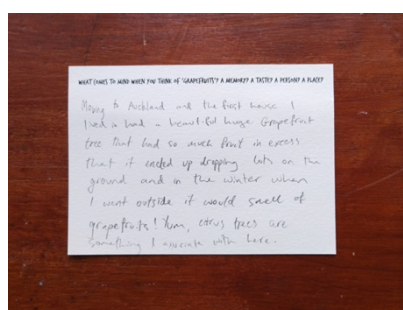 WHAT COMES TO MIND WHEN YOU THINK OF 'GRAPEFRUITS'? A MEMORY? A TASTE? A PERSON? A PLACE?
Moving to Auckland and the first house I
lived in had a beautiful huge Grapefruit
tree that had so much fruit in excess
that it ended up dropping lots on the
ground and in the winter when
I went outside it would smell of
grapefruits! Yum, citrus trees are
something I associate with here.